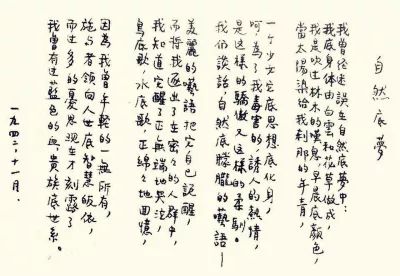 自然底夢
我曾经迷誤在自然底夢中:
我底身体由白雲和花草做成,
我是吹过林木的嘆息,早晨底顏色,
當太陽染給我刹那的年青,
一个少女它底思想底化身,
呵為了我毒害的誘人的熱情,
是這樣的驕傲又這樣的柔馴。
我们談話,自然底朦朧的囈語—
美麗的囈語把它自己説醒,
而将我逐出了在密密的人群中,
我知道它醒了正無端地哭泣,
鳥底歌,水底歌,正綿綿地回憶,
因為我曾年輕的一無所有,
施与者領向人世底智慧皈依,
而过多的憂思現在才刻露了
我曾有过蓝色的血,貴族底世系。
一九四二.十一月.